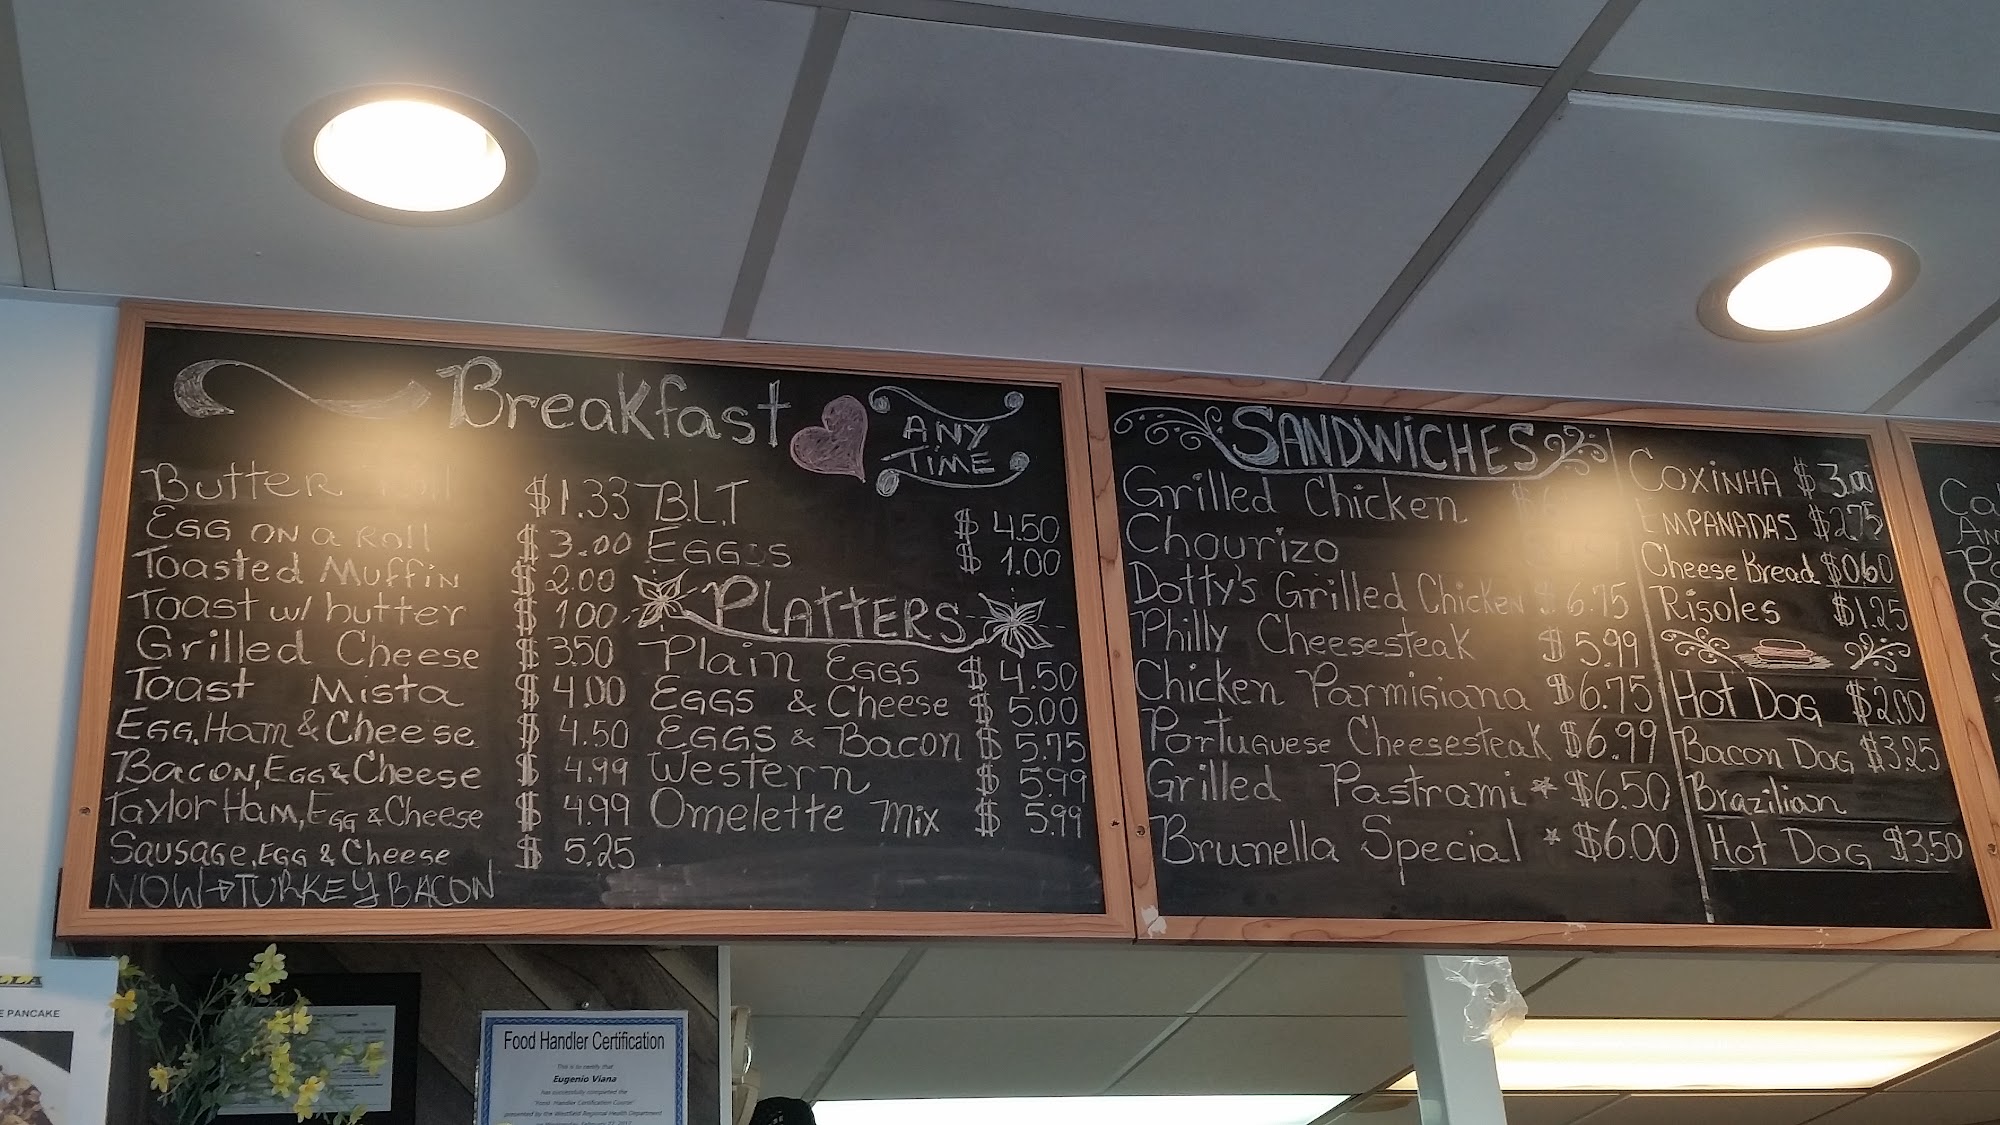 Breakfast
ANY
TIME
Butter Roll $1.33
EGG ON a Roll $3.00
Toasted Muffin $2.00
Toast w/ butter $1.00
Grilled Cheese $3.50
Toast Mista $4.00
EGG, Ham & Cheese $4.50
Bacon, Egg & Cheese $4.99
Taylor Ham, Egg & Cheese $4.99
Sausage, EGG & Cheese $5.25
NOW→TURKEY BACON
B.L.T $4.50
EGGS $1.00
PLATTERS
Plain EGGS $4.50
EGGS & Cheese $5.00
EGGS & Bacon $5.75
Western $5.99
Omelette Mix $5.99
SANDWICHES
Grilled Chicken
Chourizo
Dotty's Grilled Chicken $6.75
Philly Cheesesteak $5.99
Chicken Parmigiana $6.75
Portuguese Cheesesteak $6.99
Grilled Pastrami * $6.50
Brunella Special * $6.00
COXINHA $3.00
EMPANADAS $2.75
Cheese Bread $0.60
Risoles $1.25
Hot Dog $2.00
Bacon Dog $3.25
Brazilian
Hot Dog $3.50
E PANCAKE
Food Handler Certification
This is to certify that
Eugenio Viana
has successfully completed the
"Food Handler Certification Course"
presented by the Westfield Regional Health Department